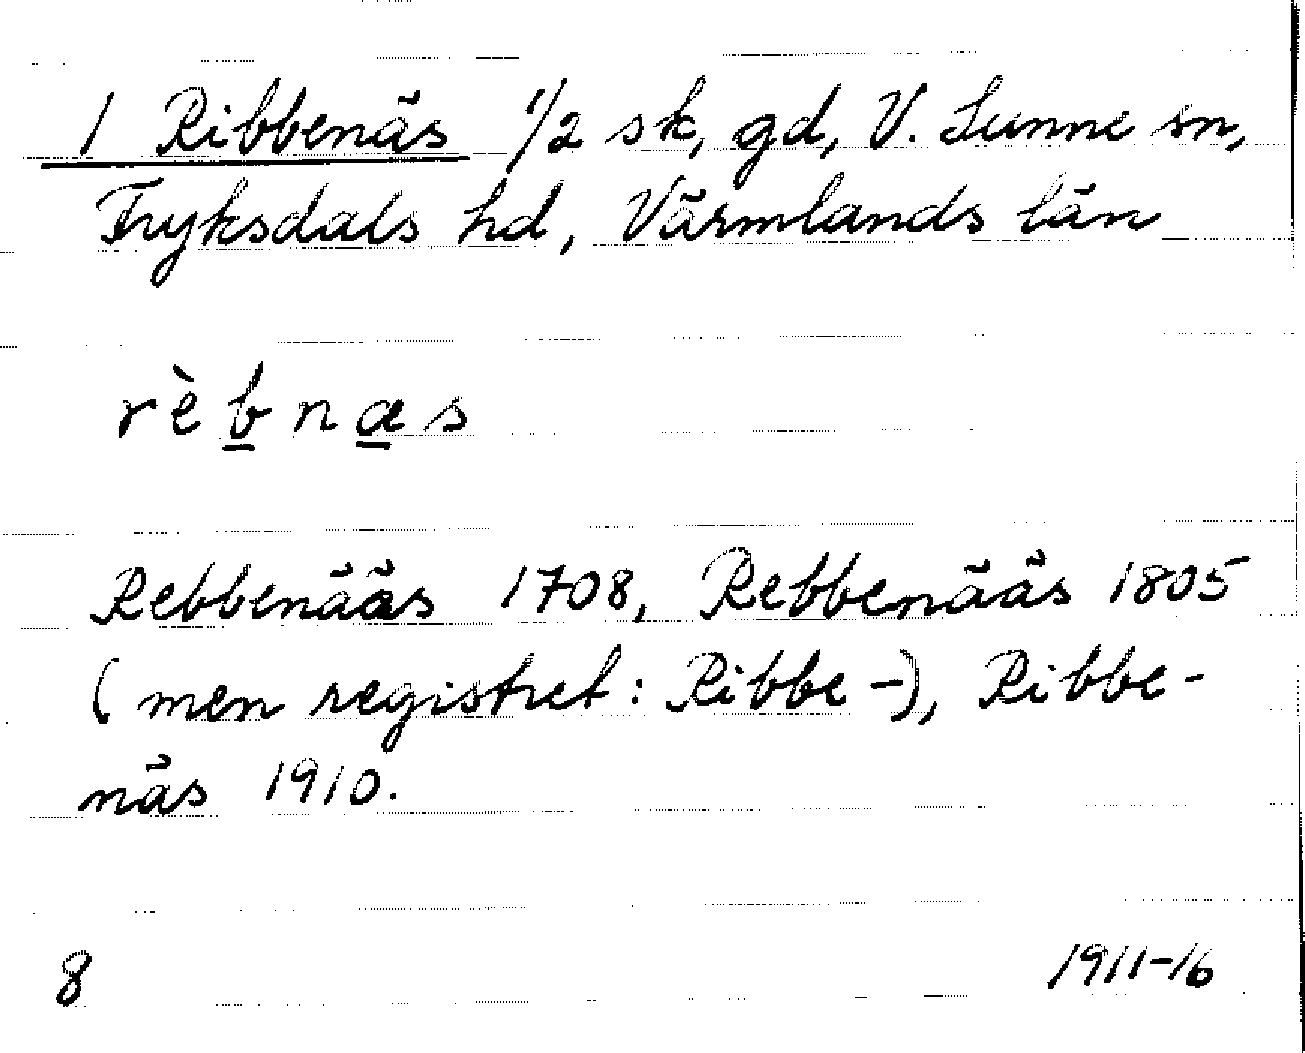 1 Ribbenäs 1/2 sk, gd, V. Sunne sn,
Fryksdals hd, Värmlands län
rèbnas
Rebbenääs 1708, Rebbenääs 1805
(men registret: Ribbe-), Ribbe-
näs 1910.
8 1911-16